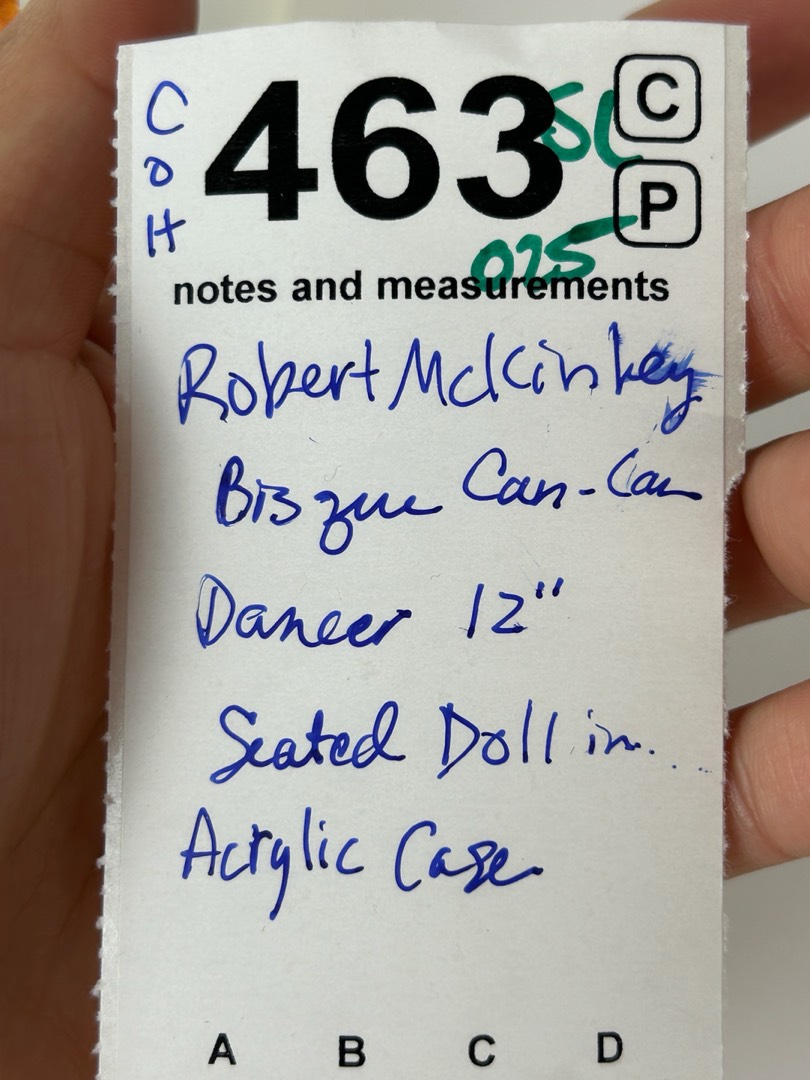 C
O
H
463
SL
C
P
025
notes and measurements
Robert McKinley
Bisque Can-Can
Dancer 12"
Seated Doll in...
Acrylic Case
A B C D